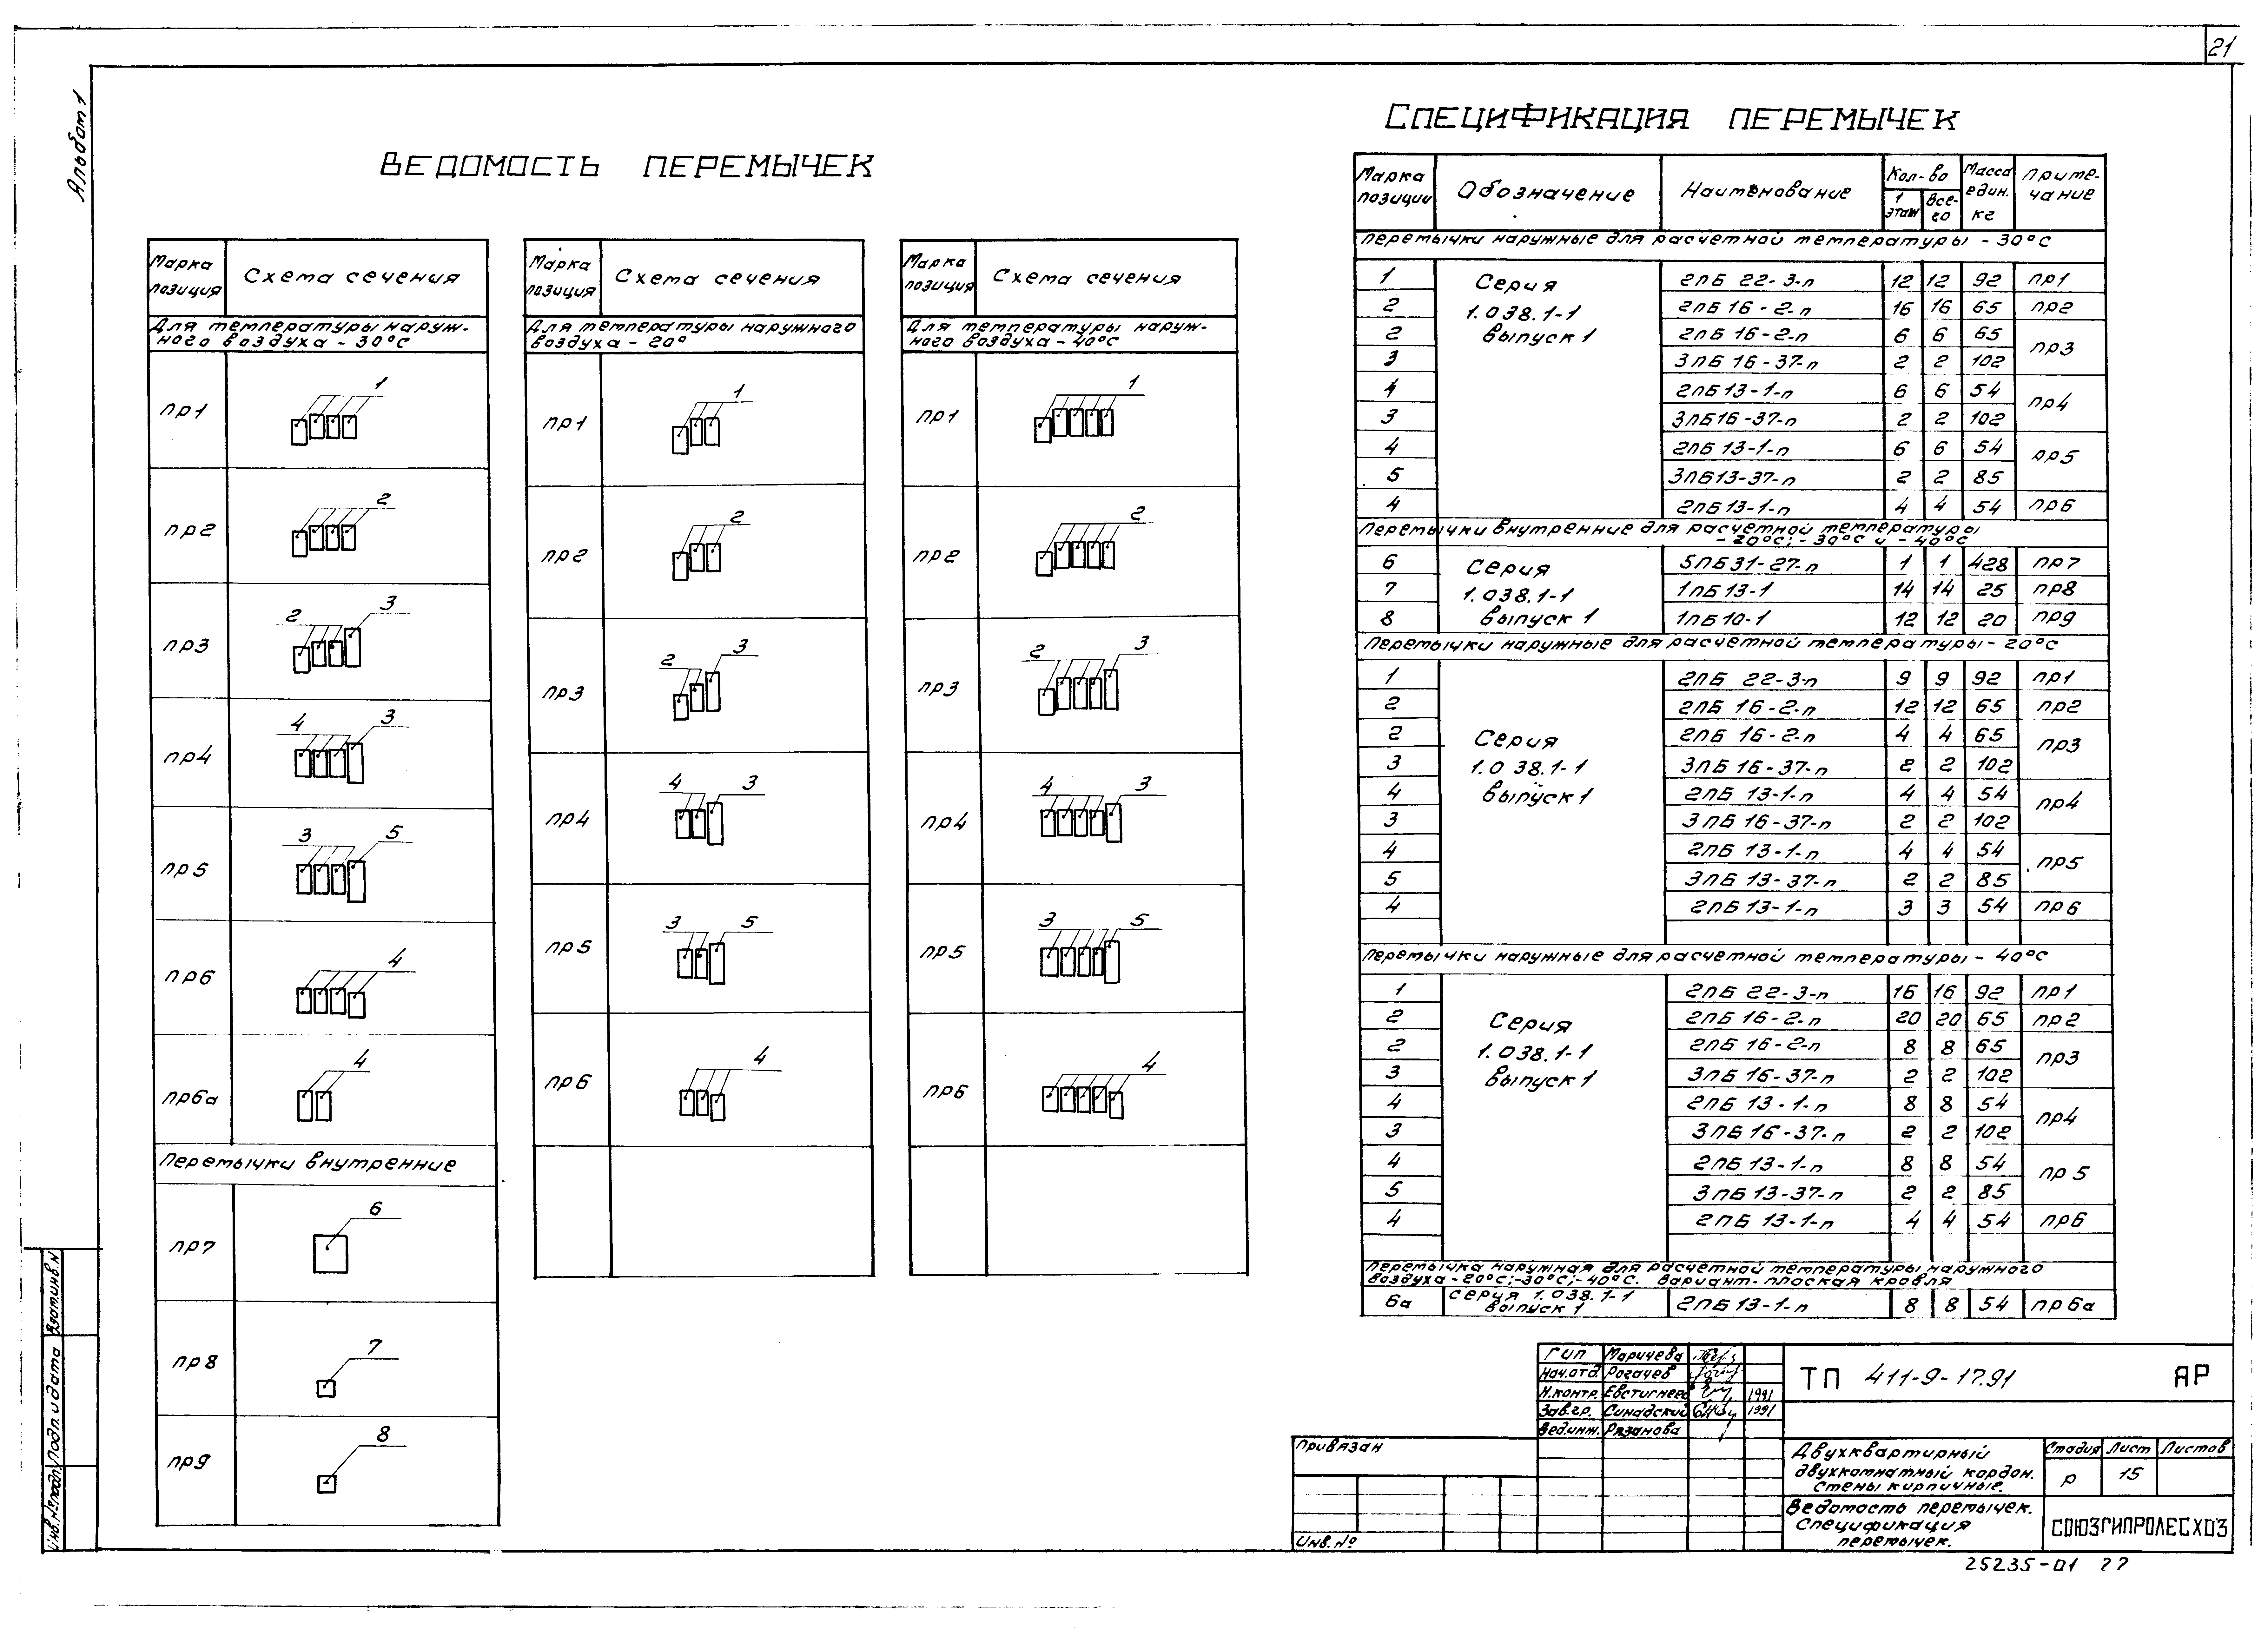 21
Альбом 1
Ведомость перемычек
Марка позиция
Схема сечения
Для температуры наруж-
ного воздуха - 30°С
пр1
1
пр2
2
пр3
2 3
пр4
4 3
пр5
3 5
пр6
4
пр6а
4
Перемычки внутренние
пр7
6
пр8
7
пр9
8
Марка позиция
Схема сечения
Для температуры наружного
воздуха - 20°
пр1
1
пр2
2
пр3
2 3
пр4
4 3
пр5
3 5
пр6
4
Марка позиция
Схема сечения
Для температуры наруж-
ного воздуха - 40°С
пр1
1
пр2
2
пр3
2 3
пр4
4 3
пр5
3 5
пр6
4
Спецификация перемычек
Марка позиции Обозначение Наименование Кол-во 1 этаж Все-го Масса един. кг Приме-чание
Перемычки наружные для расчетной температуры - 30°С
Серия
1.038.1-1
выпуск 1
1 2ПБ 22-3-п 12 12 92 пр1
2 2ПБ 16-2-п 16 16 65 пр2
2 2ПБ 16-2-п 6 6 65 пр3
3 3ПБ 16-37-п 2 2 102
4 2ПБ13-1-п 6 6 54 пр4
3 3ПБ16-37-п 2 2 102
4 2ПБ 13-1-п 6 6 54 пр5
5 3ПБ13-37-п 2 2 85
4 2ПБ13-1-п 4 4 54 пр6
Перемычки внутренние для расчетной температуры
- 20°С; - 30°С и - 40°С
Серия
1.038.1-1
выпуск 1
6 5ПБ31-27-п 1 1 428 пр7
7 1ПБ13-1 14 14 25 пр8
8 1ПБ10-1 12 12 20 пр9
Перемычки наружные для расчетной температуры - 20°С
Серия
1.038.1-1
выпуск 1
1 2ПБ 22-3-п 9 9 92 пр1
2 2ПБ 16-2-п 12 12 65 пр2
2 2ПБ 16-2-п 4 4 65 пр3
3 3ПБ 16-37-п 2 2 102
4 2ПБ 13-1-п 4 4 54 пр4
3 3ПБ 16-37-п 2 2 102
4 2ПБ 13-1-п 4 4 54 пр5
5 3ПБ 13-37-п 2 2 85
4 2ПБ 13-1-п 3 3 54 пр6
Перемычки наружные для расчетной температуры - 40°С
Серия
1.038.1-1
выпуск 1
1 2ПБ 22-3-п 16 16 92 пр1
2 2ПБ 16-2-п 20 20 65 пр2
2 2ПБ 16-2-п 8 8 65 пр3
3 3ПБ 16-37-п 2 2 102
4 2ПБ 13-1-п 8 8 54 пр4
3 3ПБ 16-37-п 2 2 102
4 2ПБ 13-1-п 8 8 54 пр5
5 3ПБ 13-37-п 2 2 85
4 2ПБ 13-1-п 4 4 54 пр6
Перемычка наружная для расчетной температуры наружного
воздуха -20°С;-30°С;-40°С. Вариант-плоская кровля
6а серия 1.038.1-1 выпуск 1 2ПБ13-1-п 8 8 54 пр6а
ГИП Маричева
Нач.отд. Рогачев
Н.контр. Евстигнеев 1991
Зав.гр. Синадский 1991
Вед.инж. Рязанова
ТП 411-9-17.91 АР
Привязан
Инв.№
Двухквартирный
двухкомнатный кордон.
Стены кирпичные.
Стадия Лист Листов
Р 15
Ведомость перемычек.
Спецификация
перемычек.
СОЮЗГИПРОЛЕСХОЗ
25235-01 22
Взам.инв.№
Подп. и дата
Инв.№ подл.